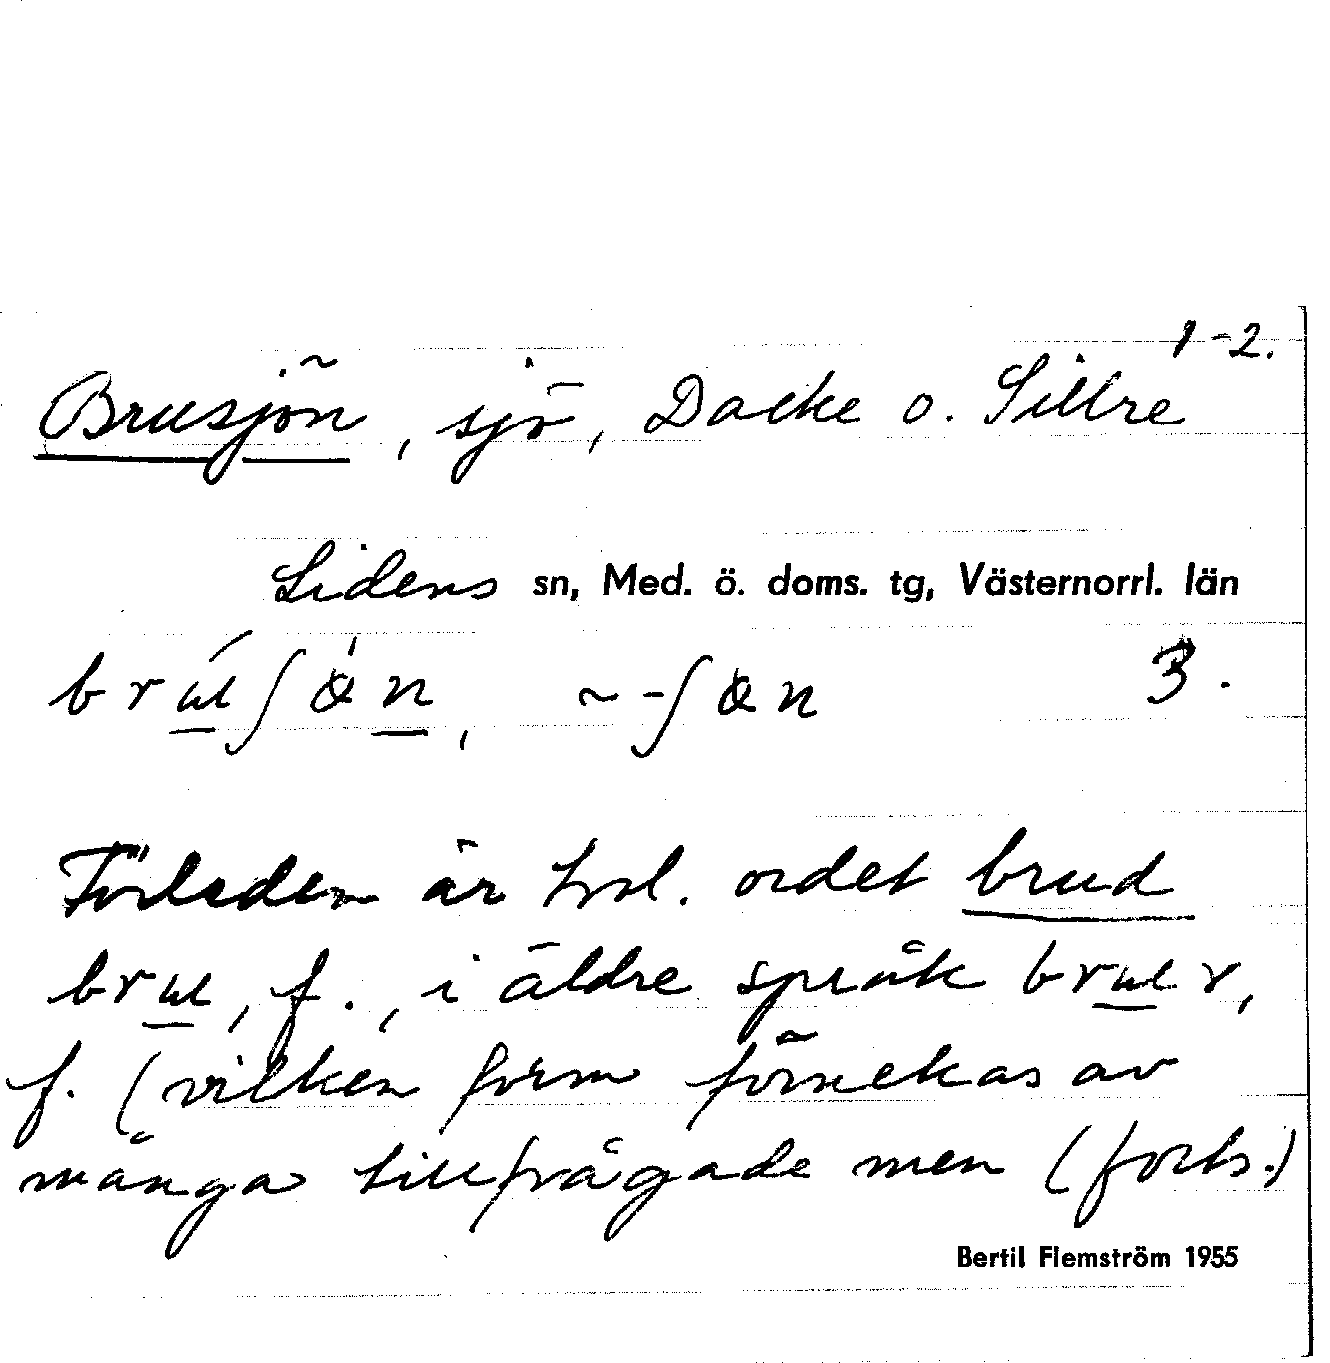 1-2.
Brusjön, sjö, Dacke o. Sillre
Lidens sn, Med. ö. doms. tg, Västernorrl. län
brɯ́ʃön, ~-ʃön 3.
Förleden är trol. ordet brud
brɯ, f., i äldre språk brɯr,
f. (vilken form förnekas av
många tillfrågade men (forts.)
Bertil Flemström 1955